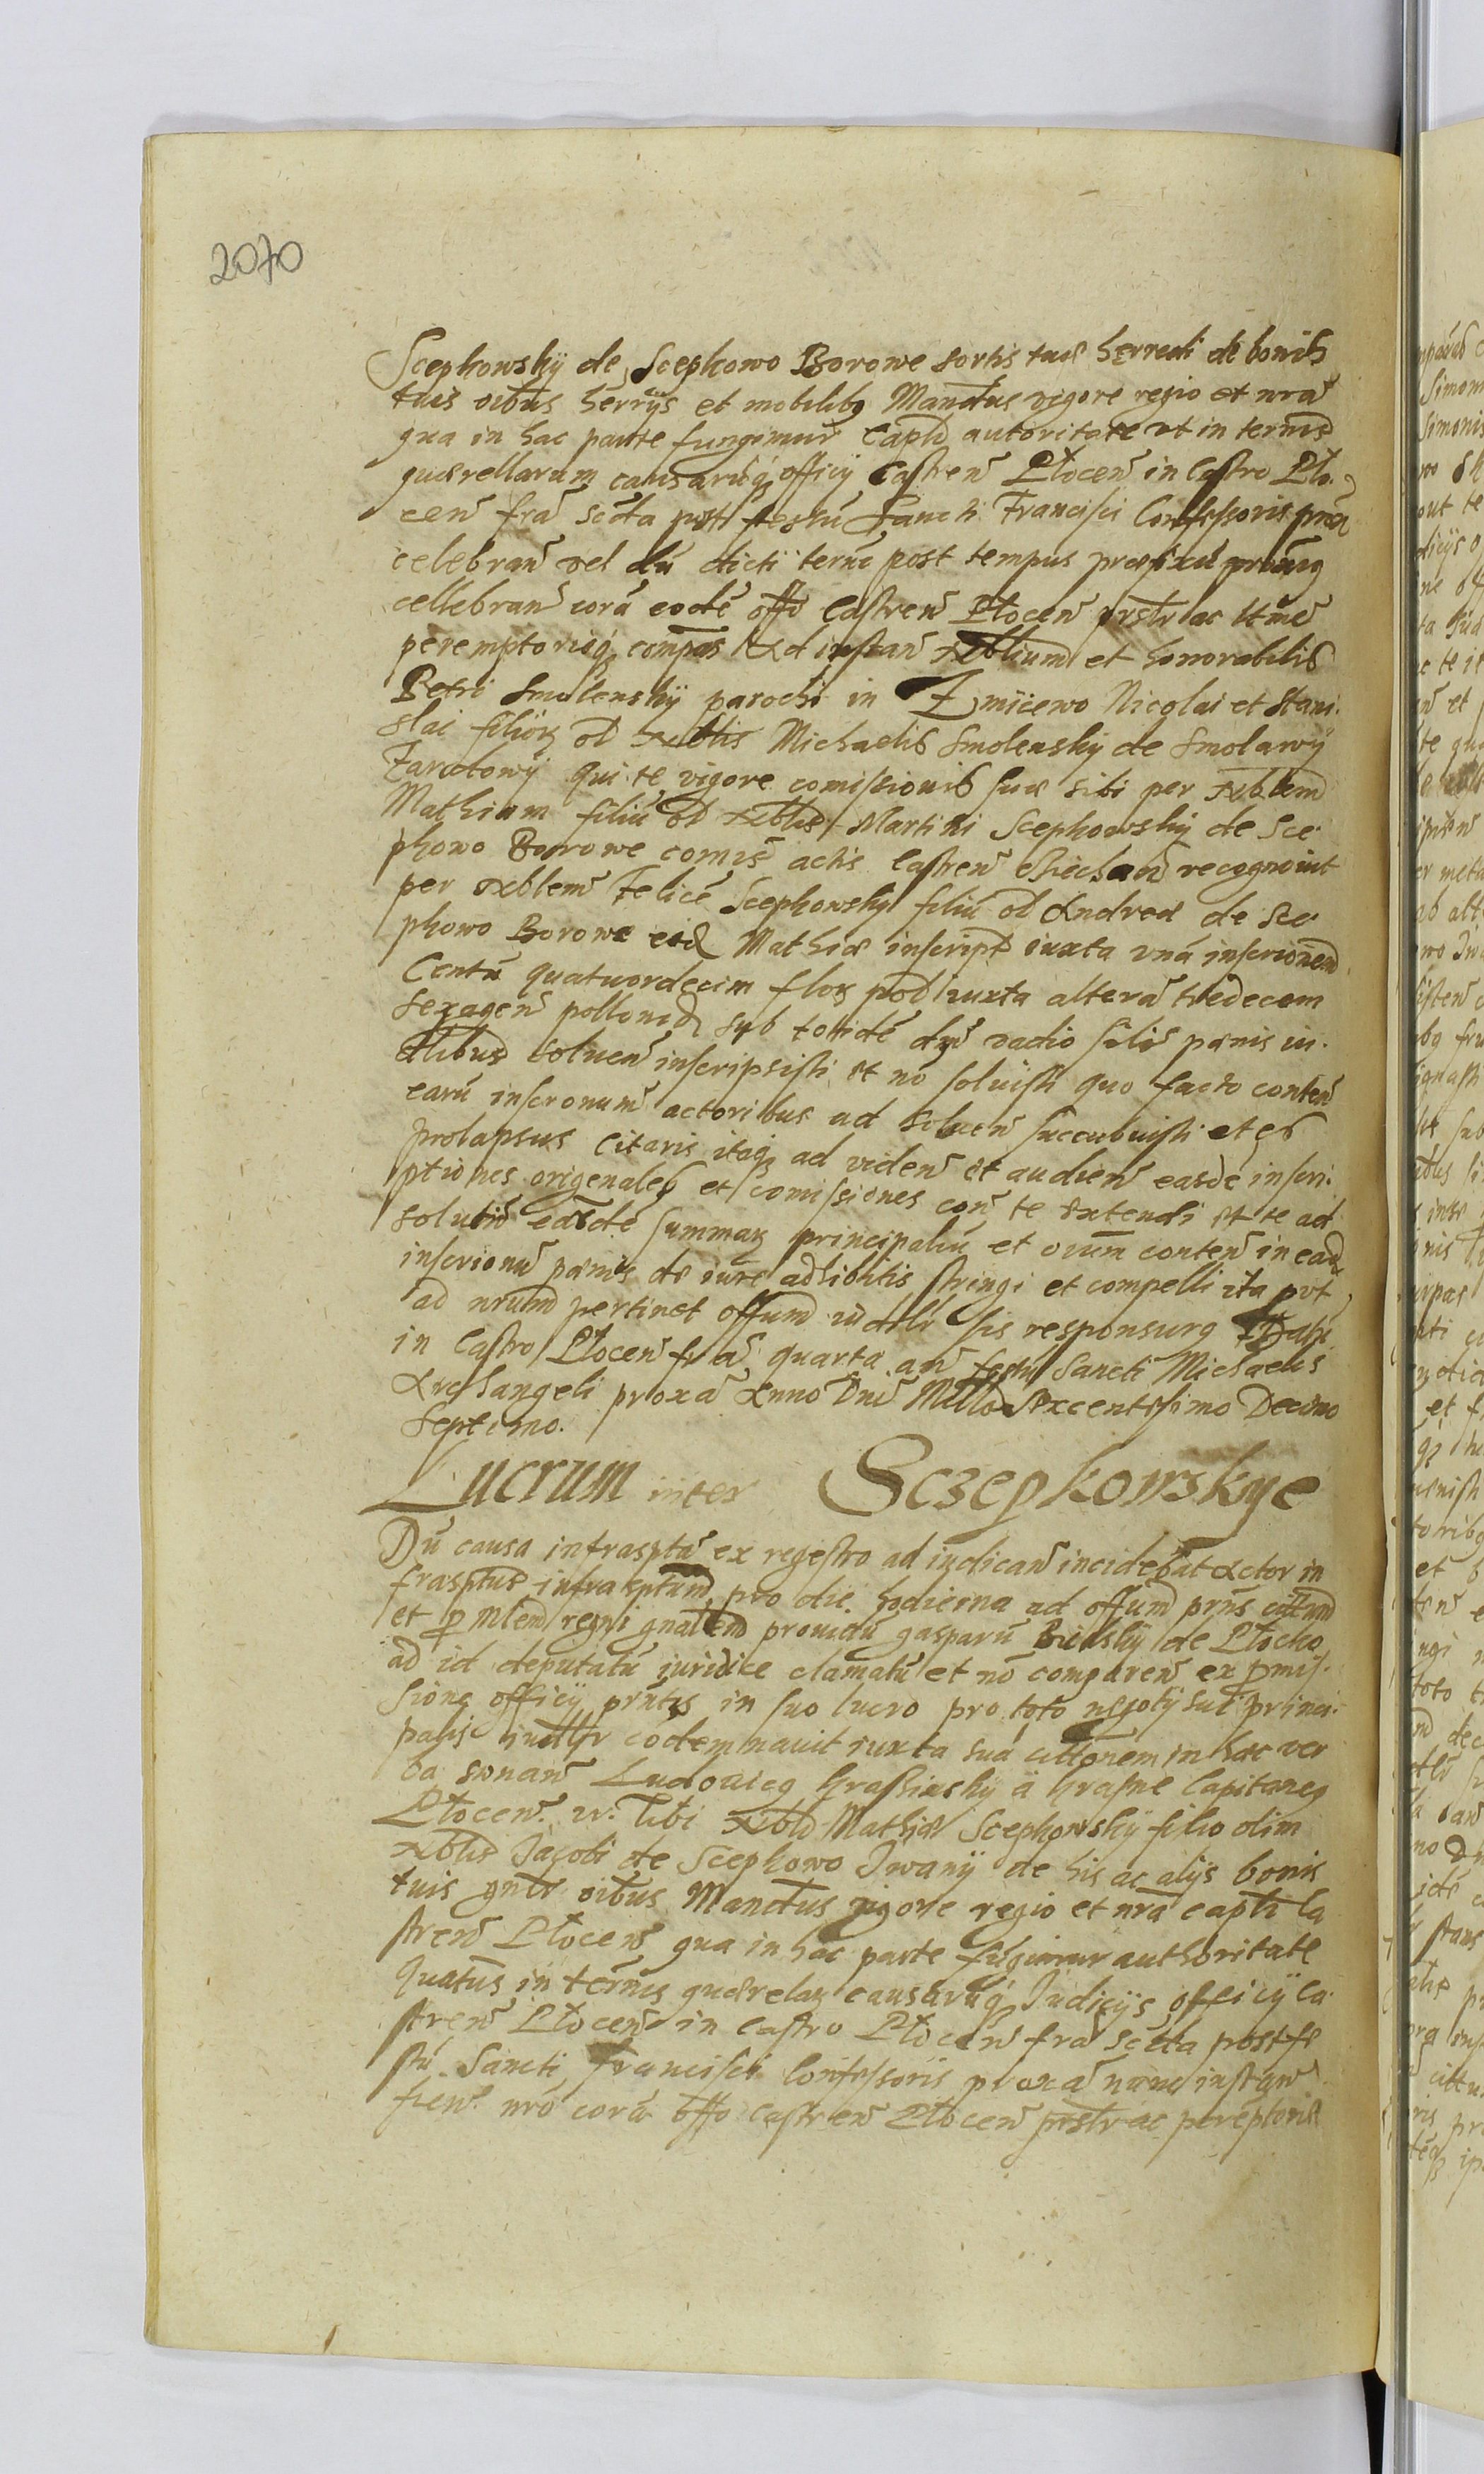 2070
Scepkowskÿ de Scepkowo Borowe sortis tuæ herredi de bonis
tuis oibus herrijs et mobilibq Mandus vigore regio et nra
qua in hac parte fungimur Captli autoritate vt in termis
querellarum causarūq officij Castren Plocen in Castro Plo.
cen fra scda post festū Sancti Francisci Confessoris proxa
celebran vel dū dicti termi post tempus præfixū primūq
cellebran corā eodē offo Castren Plocen prsltr ac ltme
peremptorieq compas Ad instan Nblium et honorabilis
Petri Smolenskÿ parochi in Zmijewo Nicolai et Stani.
slai filioꝝ ol Nblis Michaelis Smolenskÿ de Smolawÿ
Zarotowÿ qui te vigore comissionis suæ sibi per Nblem
Mathiam filiū ol Nblis Martini Scepkowskÿ de Sce.
pkowo Borowe comis actis Castren Ciechan recognoint
per Nblem Felicē Scepkowskÿ filiū ol Andreæ de Sce.
pkowo Borowe eid Mathiæ inscript iuxta vnā inscrionem
Centū quatuordecim floꝝ pol iuxta alterā tredecem
sexagen pollonicl sub totidē dni vadio silr pænis in.
dlibus soluen inscripsisti et nō soluisti quo facto conten
earū inscronum actoribus ad soluen succubuisti et es
prolapsus Citaris itaq ad viden et audien easdē inscri.
ptiones origenales et comissiones con te extendi et te ad
solutio earūdē summaꝝ principaliū et oium conten in ead
inscrionu pænis de iure adhibitis stringi et compelli ita put
ad nrum pertinet offum iudlr sis responsurq Dat
in Castro Plocen fra quarta an festū Sancti Michaelis
Archangeli proxa Anno Dni Millo Sexcentesimo Decimo
Septimo.
Lucrum inter Sczepkowskye
Dū causa infrasptā ex regestro ad iudican incidebat Actor in
frasptus infrasptum pro die hodierna ad offum prns cittum
et p Mlem regni gnalem prouidū gasparū Bielskÿ de Plocko
ad id deputatū iuridice clamatū et nō comparen ex pmis.
sione officij prntis in suo lucro pro toto negotij sui princi.
palis iudlr codemnauit iuxta suā cittonem in hæc ver
ba sonan Ludouicq Krasinskÿ a Krasne Capitaneq
Plocen. vr. Tibi Nbli Mathiæ Scepkowskÿ filio olim
Nblis Jacobi de Scepkowo Jwanÿ de his ac alijs bonis
tuis gnlr oibus Mandus vigore regio et nra captli Ca
stren Plocen qua in hac parte fūgimur authoritate
Quatus in termis querelaꝝ causarūq Judicijs officij Ca.
stren Plocen in Castro Plocen fra scda post fe
stū Sancti Francisci Confessoris proxa nunc instan
fien. nro corā offo Castren Plocen prsltr ac perēptorie